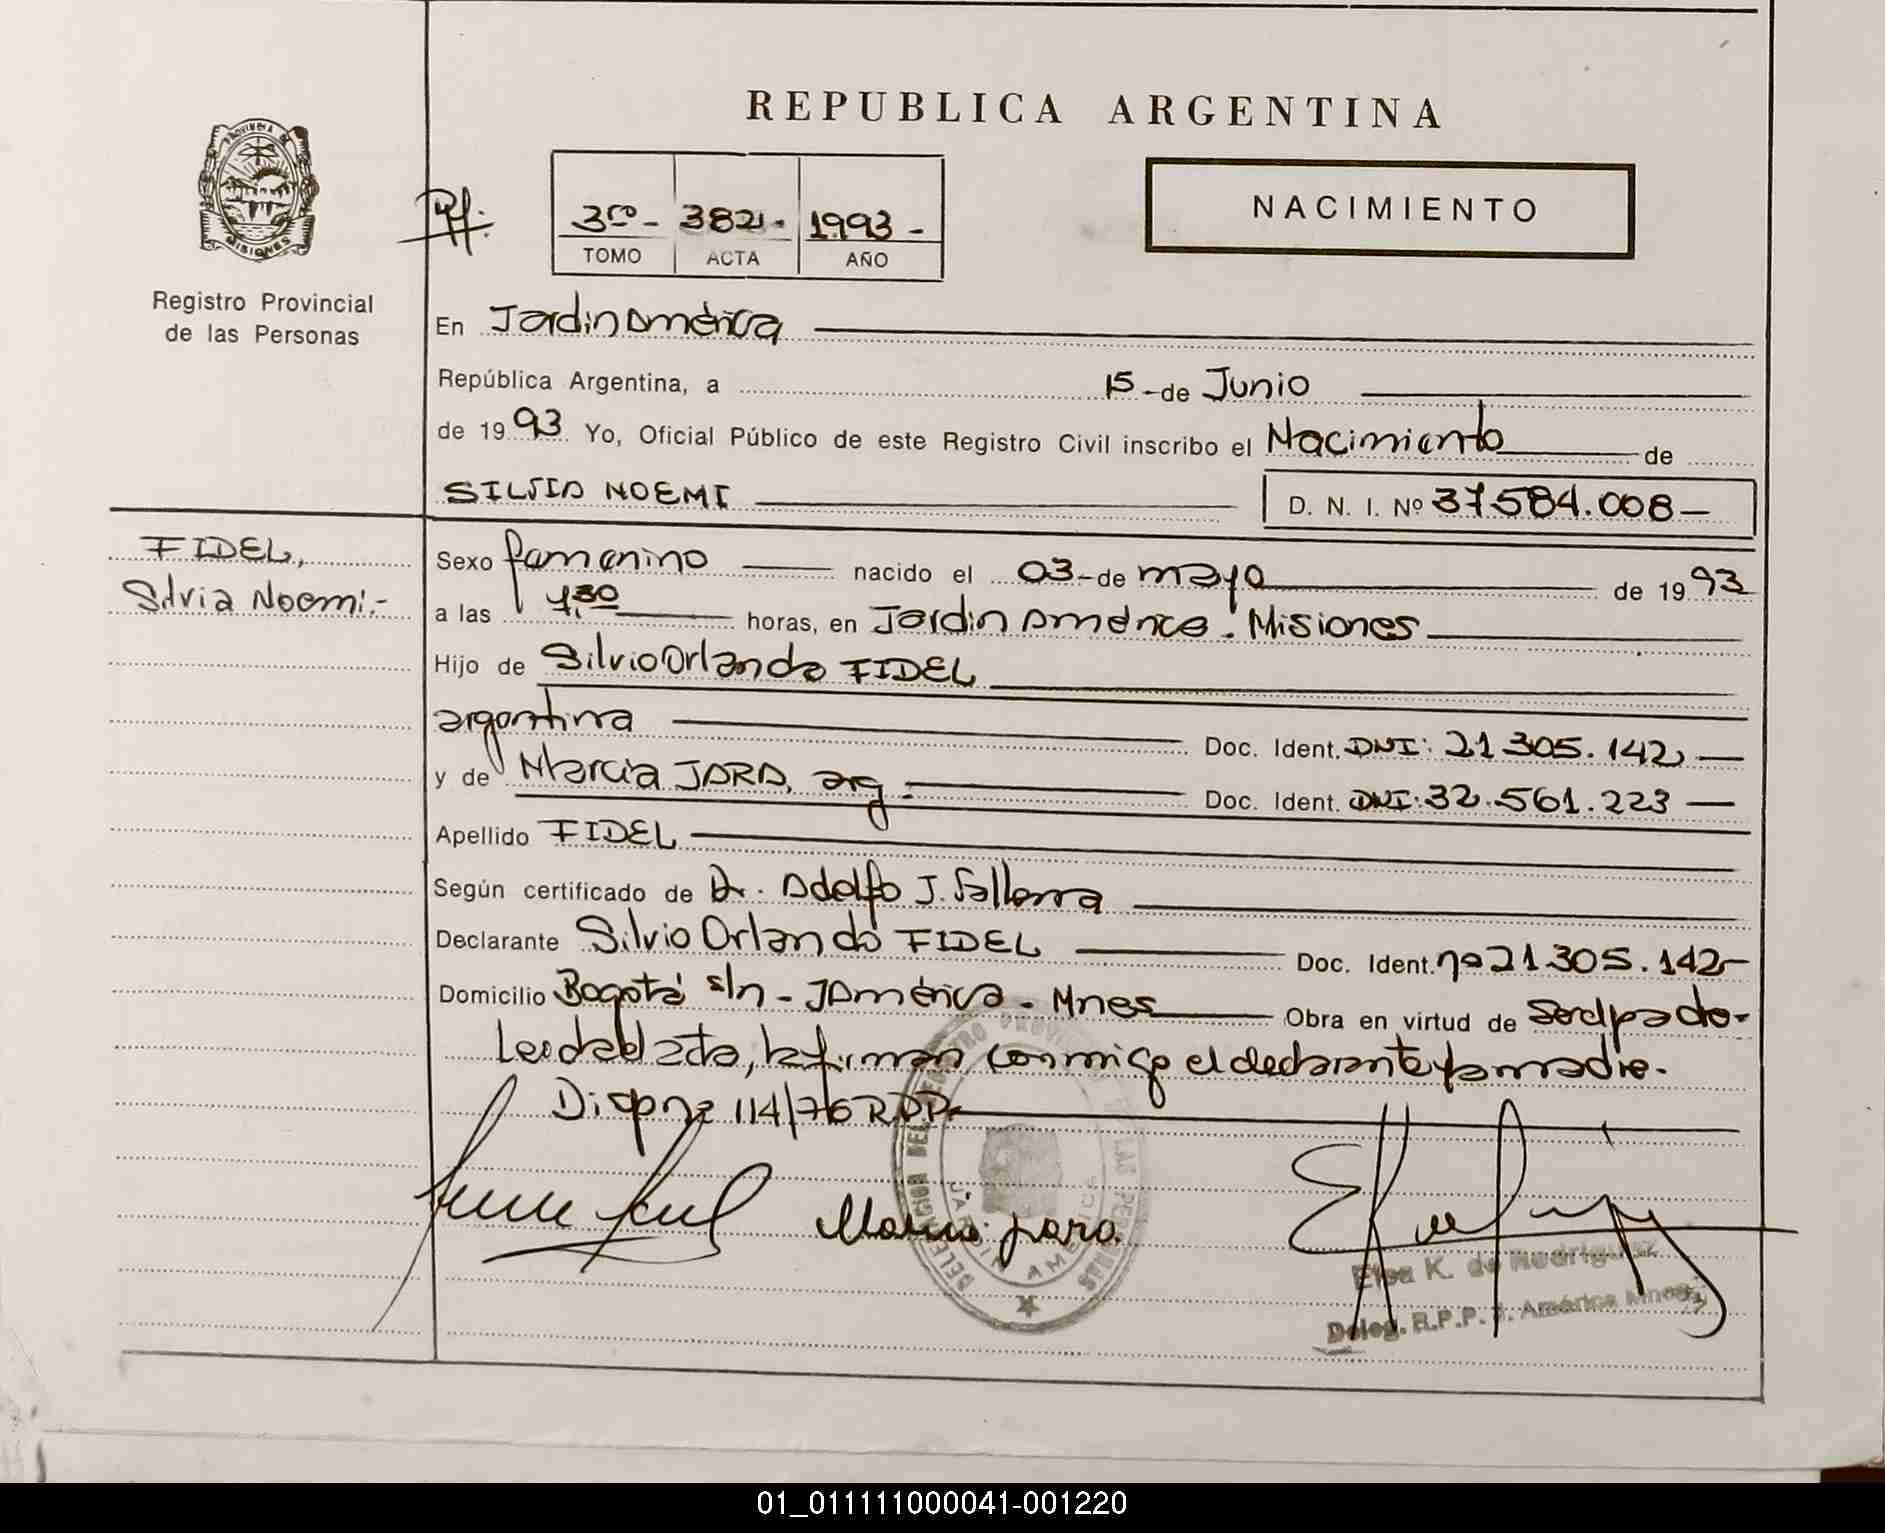 REPUBLICA ARGENTINA
PROVINCIA DE
MISIONES
Registro Provincial
de las Personas
3ro - 3821 - 1993 -
TOMO ACTA AÑO
NACIMIENTO
En Jardin América
República Argentina, a 15 - de Junio
de 1993 Yo, Oficial Público de este Registro Civil inscribo el Nacimiento de
SILVIA NOEMI D. N. I. Nº 37584.008 -
FIDEL,
Silvia Noemi.-
Sexo femenino nacido el 03 - de mayo de 1993
a las 7,30 horas, en Jardin América. Misiones
Hijo de Silvio Orlando FIDEL
argentina Doc. Ident. DNI: 21 305.142 -
y de Marcia JARA, arg. Doc. Ident. DNI: 32.561.223 -
Apellido FIDEL
Según certificado de Dr. Adolfo J.
Declarante Silvio Orlando FIDEL Doc. Ident. nº 21 305.142 -
Domicilio Bogotá s/n - J América - Mnes Obra en virtud de
Leida el acta, la firman conmigo el declarante y la madre.
114/76 R.P.P.
Marcia jara.
DELEGACION DEL REGISTRO PROVINCIAL DE LAS PERSONAS
JARDIN AMERICA
Elsa K. de Rodriguez
Deleg. R.P.P. J. América Mnes
01_011111000041-001220